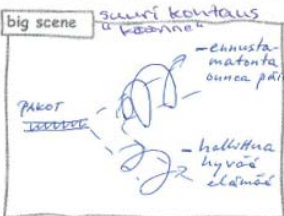 big scene
suuri kohtaus
"käänne"
– ennusta-
matonta
onnea päi
PAKOT
– hallittua
hyvää
elämää